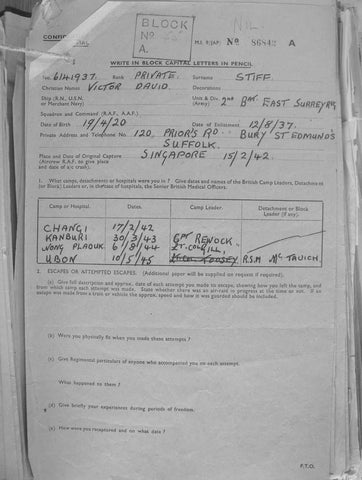 BLOCK
No
A.
NIL
CONFIDENTIAL
M.I. 9/JAP/ No 86842 A
WRITE IN BLOCK CAPITAL LETTERS IN PENCIL.
No. 6141937. Rank PRIVATE. Surname STIFF.
Christian Names VICTOR DAVID. Decorations
Ship (R.N., U.S.N. or Merchant Navy) Unit & Div. (Army) 2nd Bn. EAST SURREY RGT
Squadron and Command (R.A.F., A.A.F.)
Date of Birth 19/4/20 Date of Enlistment 12/8/37.
Private Address and Telephone No. 120, PRIOR'S RD. BURY ST EDMUNDS
SUFFOLK.
Place and Date of Original Capture SINGAPORE 15/2/42.
(Aircrew R.A.F. to give place and date of a/c crash).
1. What camps, detachments or hospitals were you in ? Give dates and names of the British Camp Leaders, Detachment
(or Block) Leaders or, in the case of hospitals, the Senior British Medical Officers.
Camp or Hospital. Dates. Camp Leader. Detachment or Block Leader (if any).
CHANGI 17/2/42
KANBURI 30/3/43 CPT RENOCK.
NONG PLADUK 6/8/44 LT. COL GILL.
UBON 10/5/45 R.S.M Mc TAVICH.
2. ESCAPES OR ATTEMPTED ESCAPES. (Additional paper will be supplied on request if required).
(a) Give full description and approx. date of each attempt you made to escape, showing how you left the camp, and
from which camp each attempt was made. State whether there was an air-raid in progress at the time or not. If an
escape was made from a train or vehicle the approx. speed and how it was guarded should be included.
(b) Were you physically fit when you made these attempts ?
(c) Give Regimental particulars of anyone who accompanied you on each attempt.
What happened to them ?
(d) Give briefly your experiences during periods of freedom.
(e) How were you recaptured and on what date ?
P.T.O.